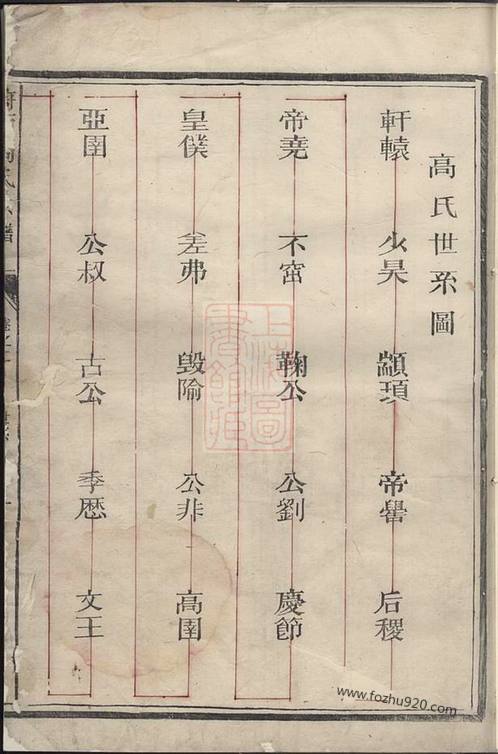 高氏世系圖
軒轅 少昊 顓頊 帝嚳 后稷
帝堯 不窋 鞠公 公劉 慶節
皇僕 差弗 毀隃 公非 高圉
亞圉 公叔 古公 季歷 文王
上海圖書館藏
www.fozhu920.com